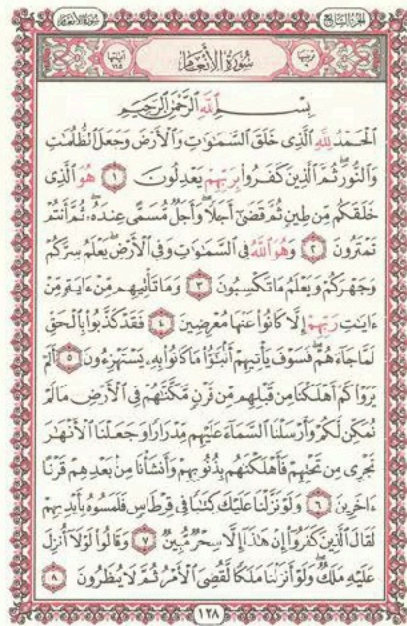 سورة الأنعام
الجزء السابع
ترتيبها ٦
سُورَةُ الأَنعَامِ
آياتها ١٦٥
بِسْمِ اللَّهِ الرَّحْمَٰنِ الرَّحِيمِ
الْحَمْدُ لِلَّهِ الَّذِى خَلَقَ السَّمَٰوَٰتِ وَالْأَرْضَ وَجَعَلَ الظُّلُمَٰتِ
وَالنُّورَ ۖ ثُمَّ الَّذِينَ كَفَرُوا بِرَبِّهِمْ يَعْدِلُونَ ١ هُوَ الَّذِى
خَلَقَكُم مِّن طِينٍ ثُمَّ قَضَىٰٓ أَجَلًا ۖ وَأَجَلٌ مُّسَمًّى عِندَهُۥ ۖ ثُمَّ أَنتُمْ
تَمْتَرُونَ ٢ وَهُوَ اللَّهُ فِى السَّمَٰوَٰتِ وَفِى الْأَرْضِ ۖ يَعْلَمُ سِرَّكُمْ
وَجَهْرَكُمْ وَيَعْلَمُ مَا تَكْسِبُونَ ٣ وَمَا تَأْتِيهِم مِّنْ ءَايَةٍ مِّنْ
ءَايَٰتِ رَبِّهِمْ إِلَّا كَانُوا عَنْهَا مُعْرِضِينَ ٤ فَقَدْ كَذَّبُوا بِالْحَقِّ
لَمَّا جَآءَهُمْ ۖ فَسَوْفَ يَأْتِيهِمْ أَنۢبَٰٓؤُا مَا كَانُوا بِهِۦ يَسْتَهْزِءُونَ ٥ أَلَمْ
يَرَوْا كَمْ أَهْلَكْنَا مِن قَبْلِهِم مِّن قَرْنٍ مَّكَّنَّٰهُمْ فِى الْأَرْضِ مَا لَمْ
نُمَكِّن لَّكُمْ وَأَرْسَلْنَا السَّمَآءَ عَلَيْهِم مِّدْرَارًا وَجَعَلْنَا الْأَنْهَٰرَ
تَجْرِى مِن تَحْتِهِمْ فَأَهْلَكْنَٰهُم بِذُنُوبِهِمْ وَأَنشَأْنَا مِنۢ بَعْدِهِمْ قَرْنًا
ءَاخَرِينَ ٦ وَلَوْ نَزَّلْنَا عَلَيْكَ كِتَٰبًا فِى قِرْطَاسٍ فَلَمَسُوهُ بِأَيْدِيهِمْ
لَقَالَ الَّذِينَ كَفَرُوٓا إِنْ هَٰذَآ إِلَّا سِحْرٌ مُّبِينٌ ٧ وَقَالُوا لَوْلَآ أُنزِلَ
عَلَيْهِ مَلَكٌ ۖ وَلَوْ أَنزَلْنَا مَلَكًا لَّقُضِىَ الْأَمْرُ ثُمَّ لَا يُنظَرُونَ ٨
١٢٨